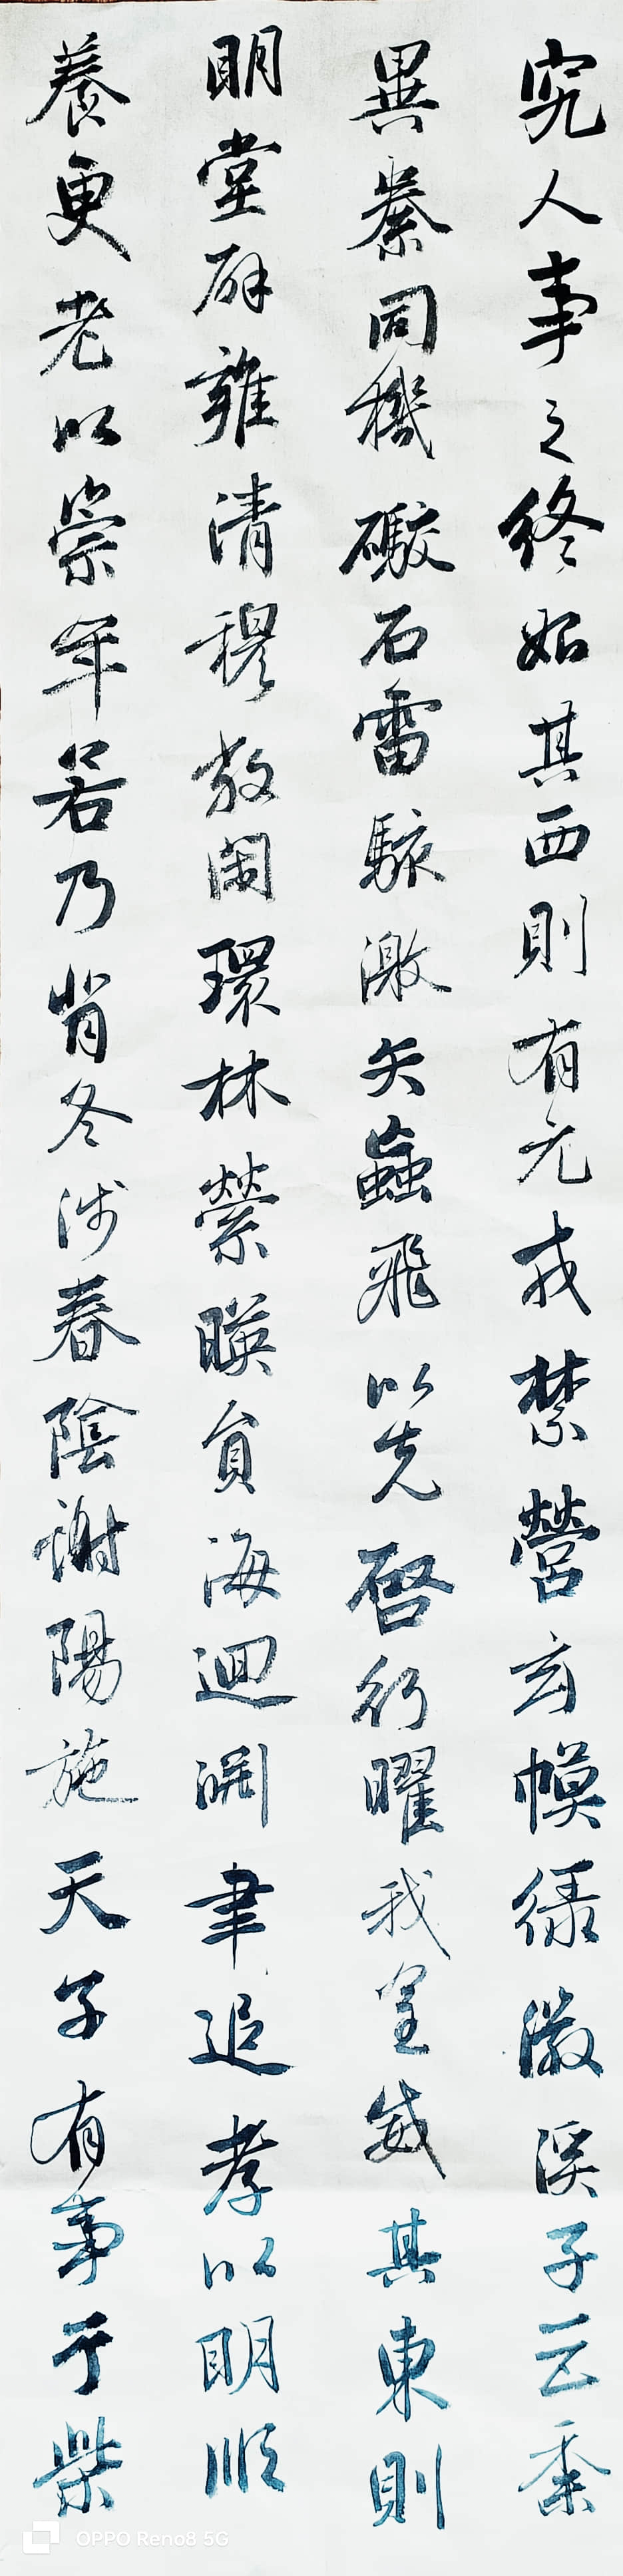 究人事之終始其西則有元戎禁營玄幙綠徽溪子巨黍
異絭同機礮石雷駭激矢蝱飛以先啓行曜我皇威其東則
明堂辟雍清穆敞閑環林縈暎員海迴淵聿追孝以明順
養更老以崇年若乃背冬涉春陰謝陽施天子有事于柴
OPPO Reno8 5G